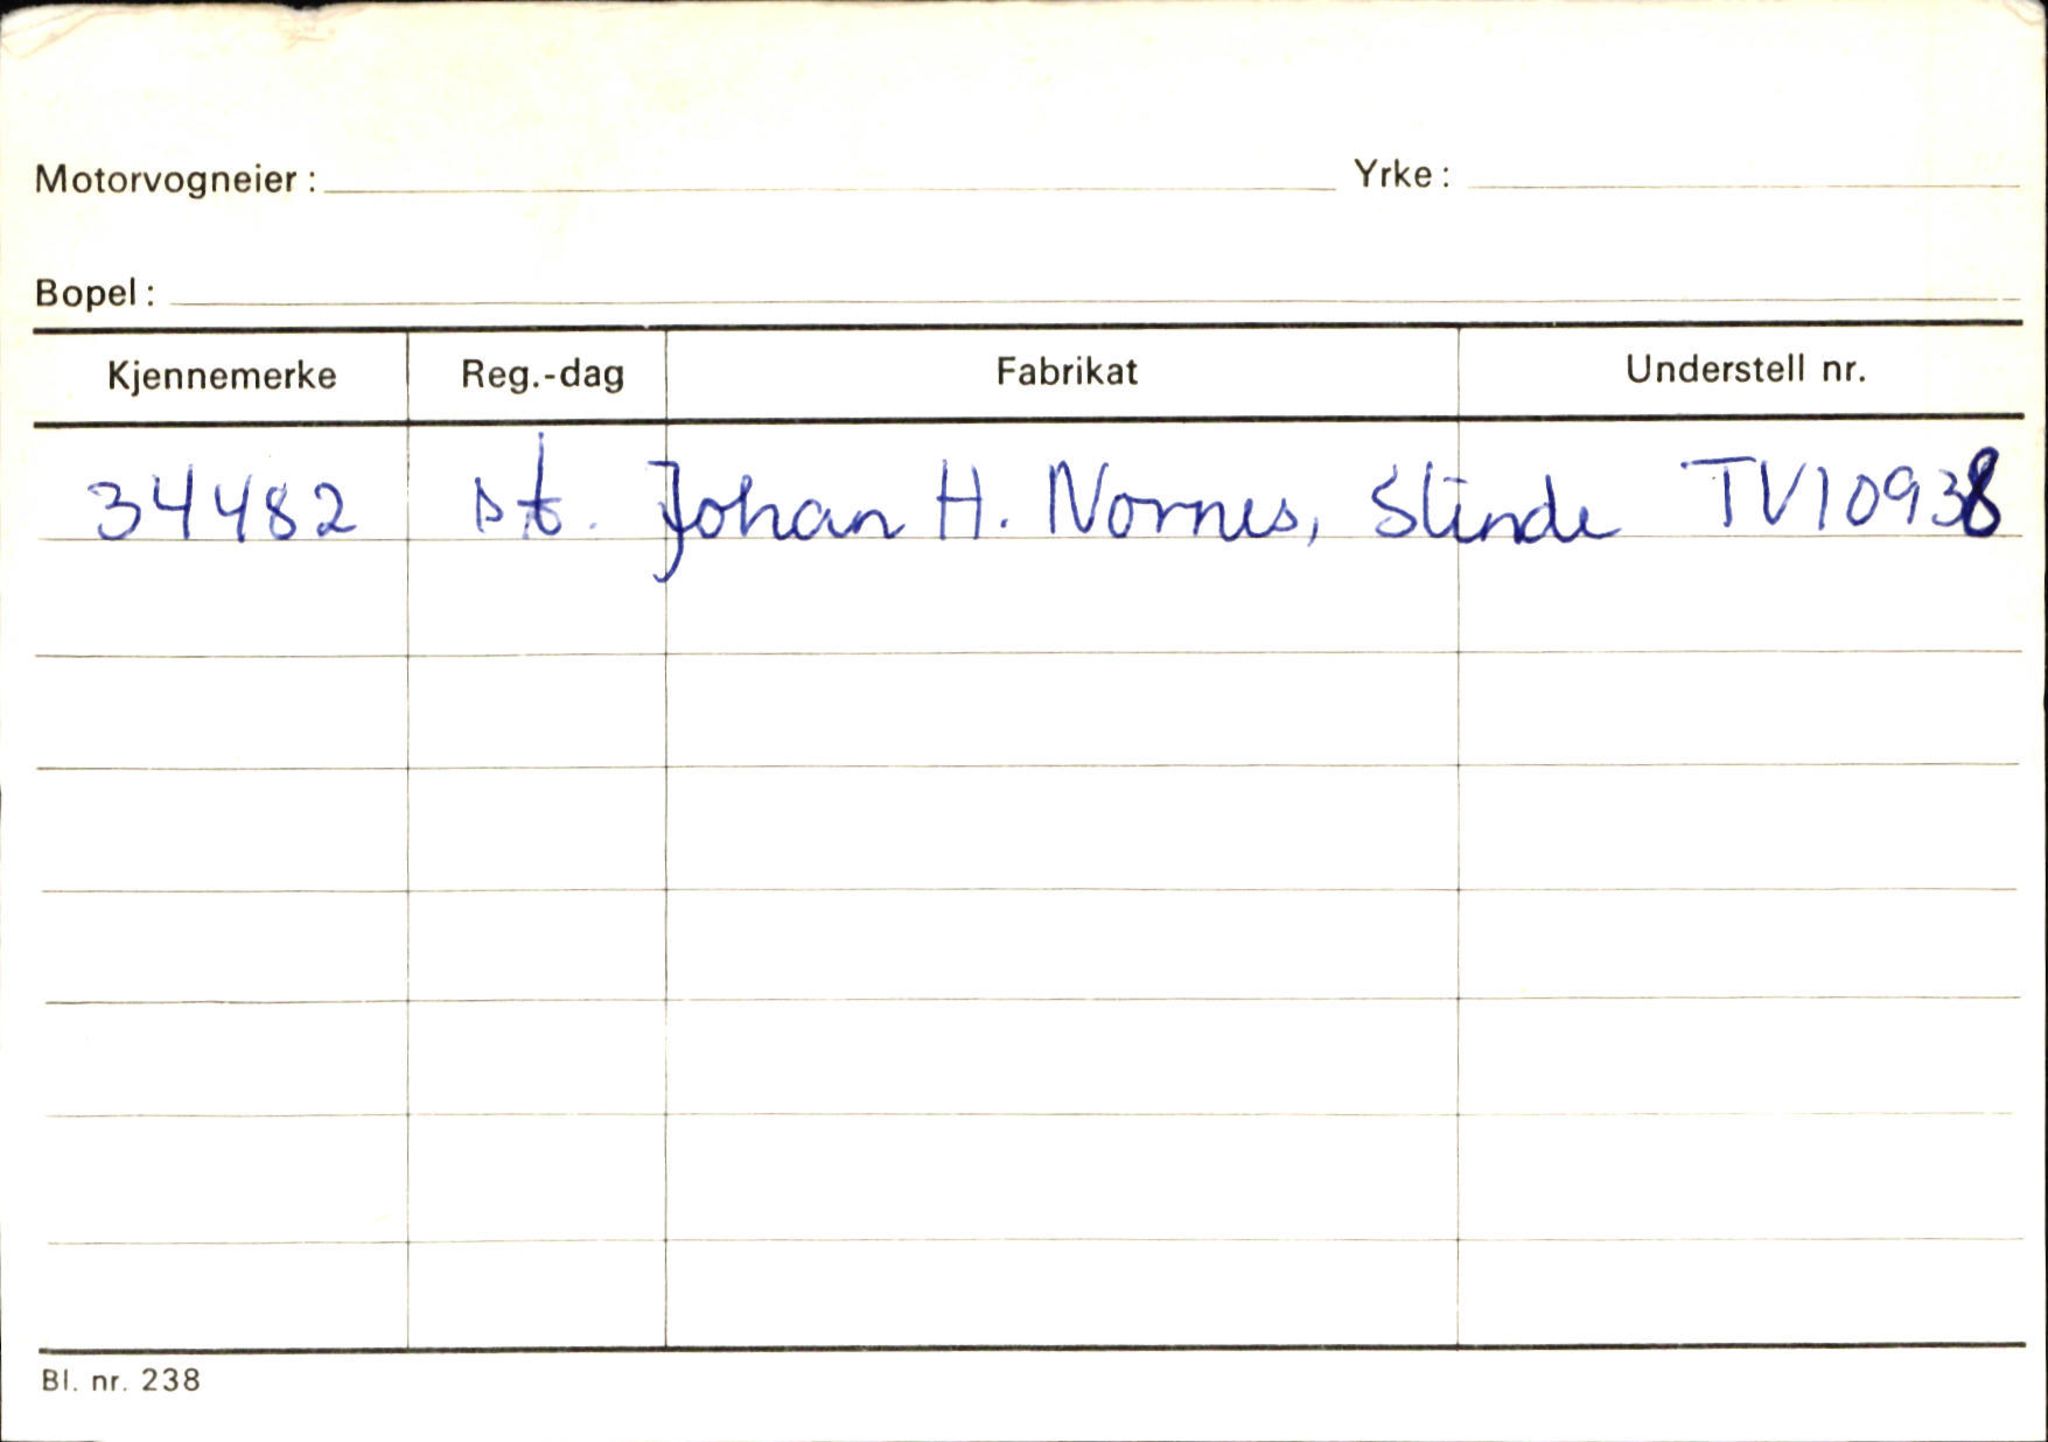 Motorvogneier: Yrke:
Bopel:
Kjennemerke Reg.-dag Fabrikat Understell nr.
34482 st. Johan H. Nornes, Slinde TV10938
Bl. nr. 238